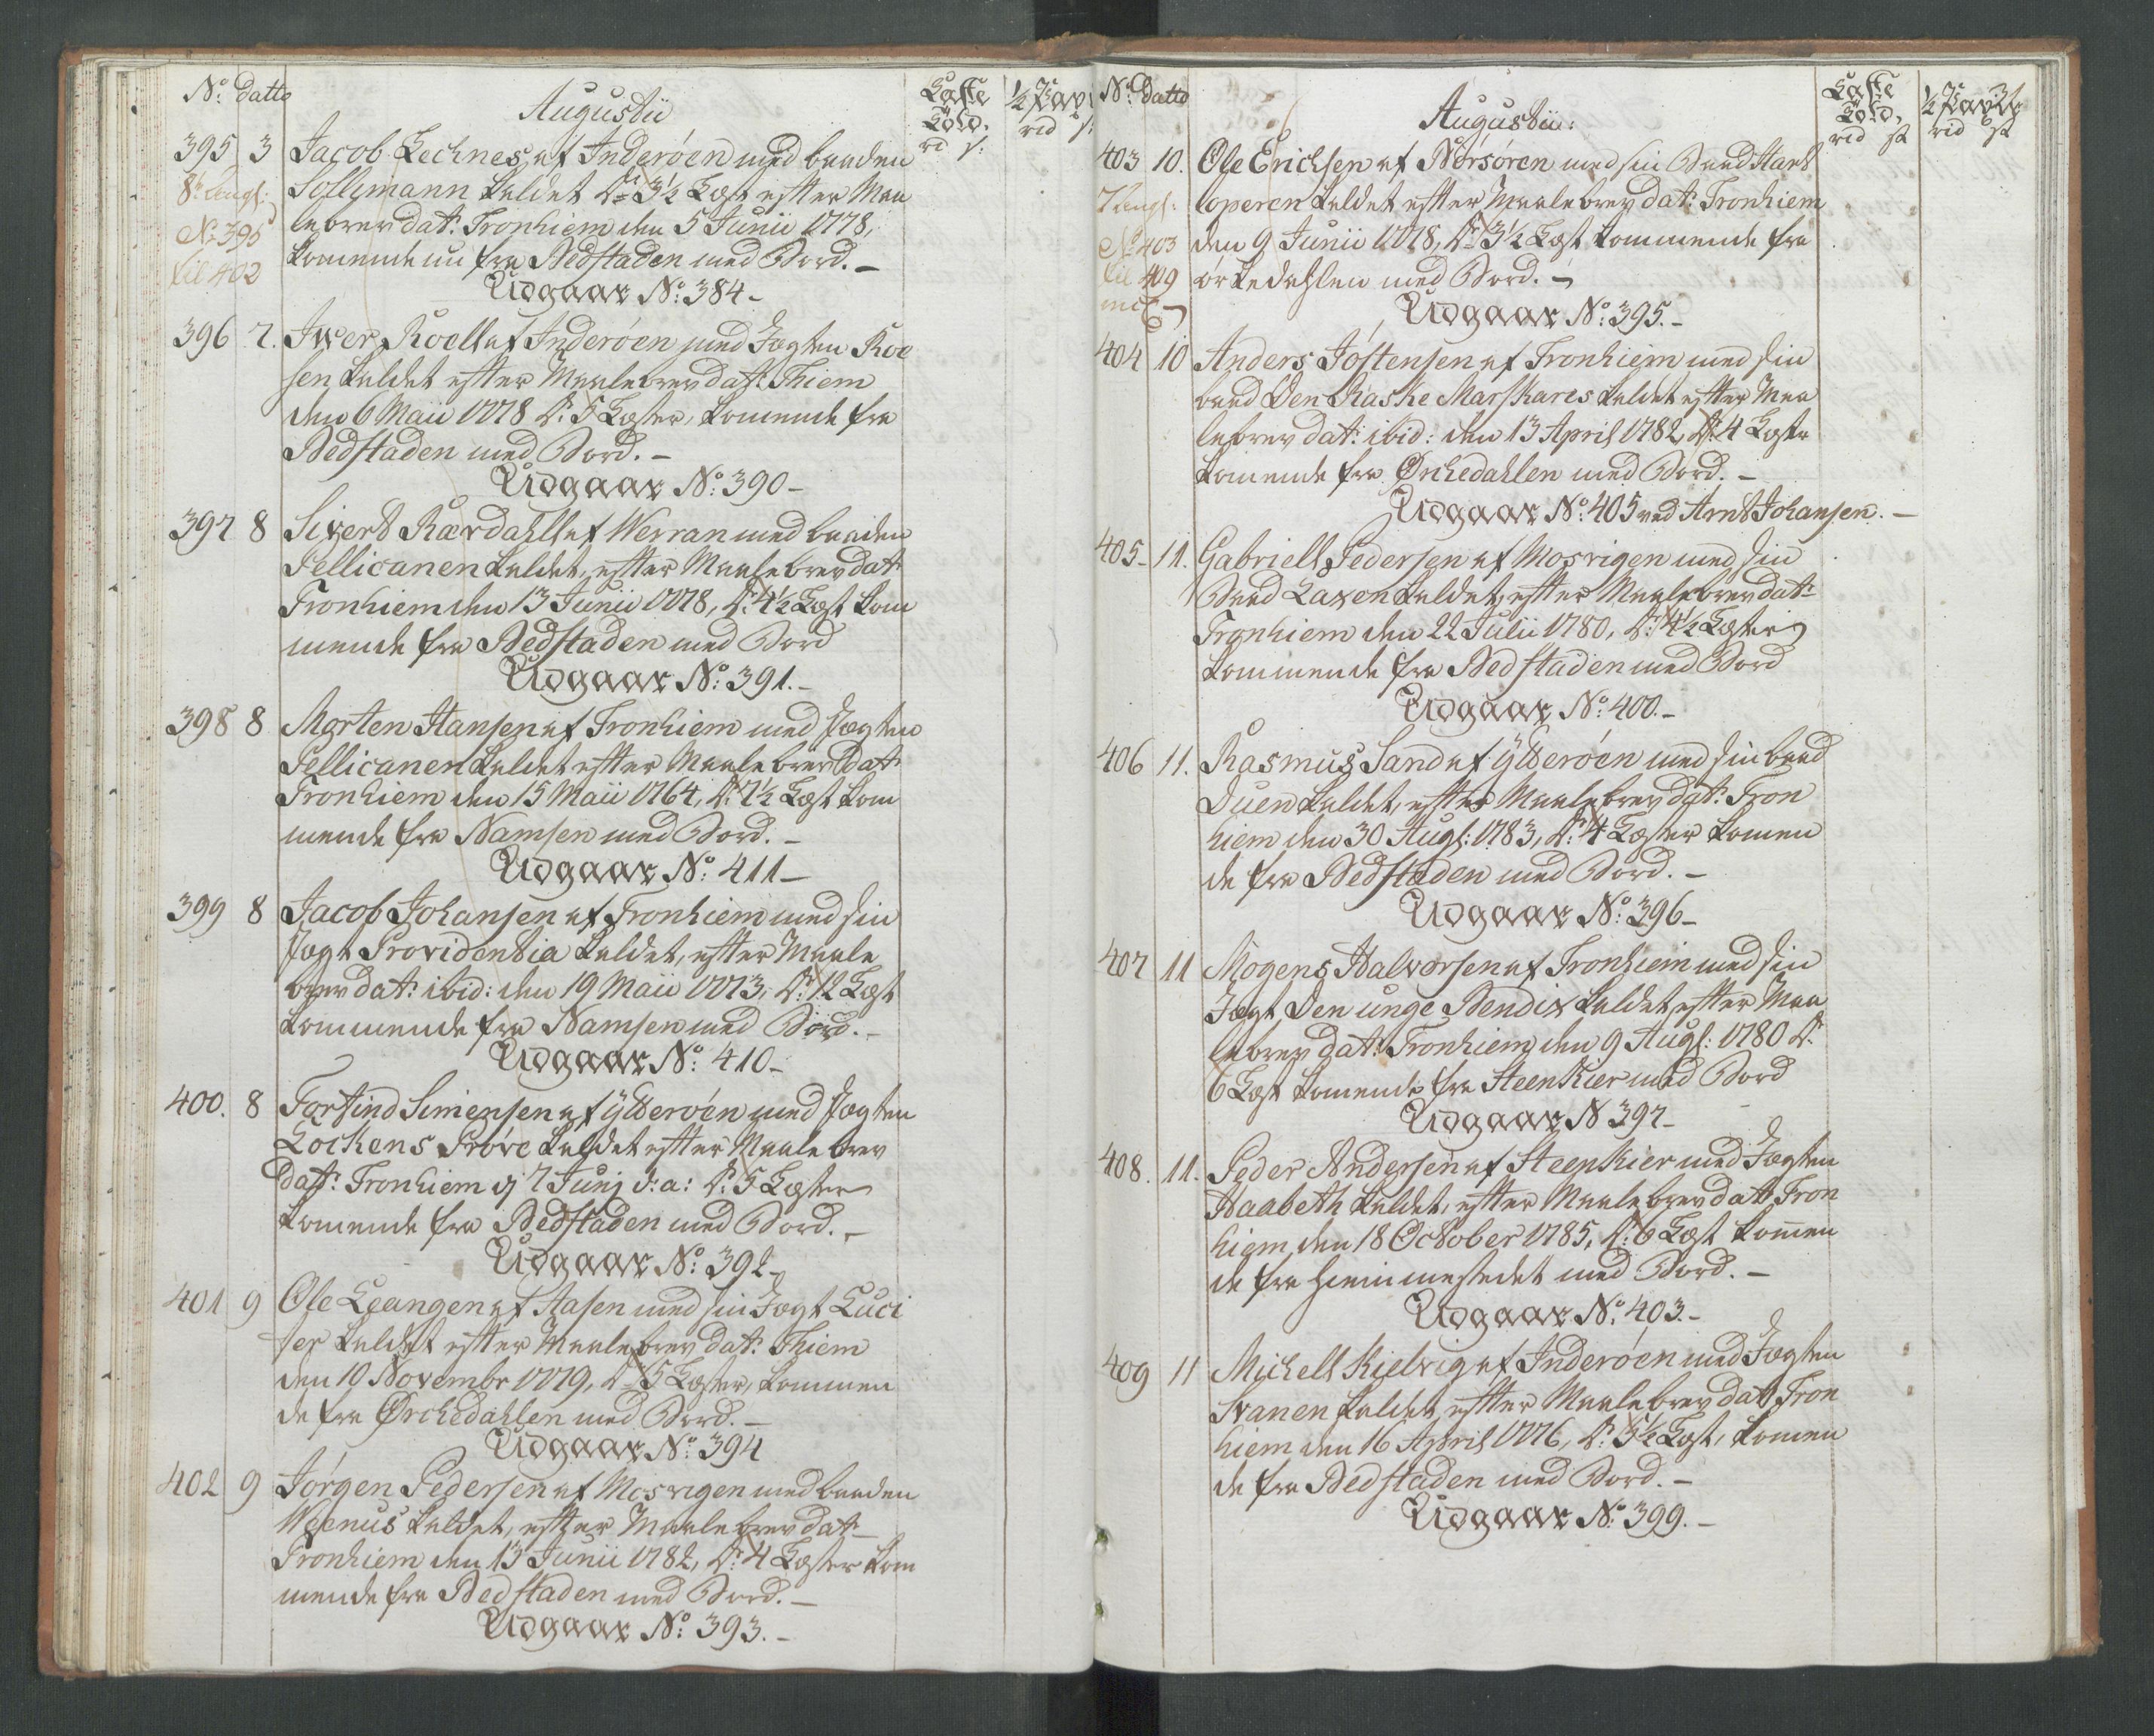 No: datto
Augustii
Læste
Told.
rd s:
½ Pav:
rd s:
395 3 Jacob Lechnes af Inderöen med baaden
8te Augl:
No 395
til 402
Sollymann kaldet Dr: 3½ Læst efter Maa
lebrev dat: Tronhiem den 5 Junii 1778,
kommende nu fra Bedstaden med Bord. –
Udgaar No: 384 –
396 7. Iwer Roell af Inderöen med Jagten Roe
sen kaldet efter Maalebrev dat: Thiem
den 6 Maii 1778 Dr: 5 Læster, komende fra
Bedstaden med Bord. –
Udgaar No: 390 –
397 8 Sivert Kærdahl af Werran med baaden
Pellicanen kaldet, efter Maalebrev dat:
Tronhiem den 13 Junii 1778, Dr: 4½ Læst kom
mende fra Bedstaden med Bord
Udgaar No: 391. –
398 8 Morten Hansen af Tronhiem med Jagten
Pellicanen kaldet efter Maalebrev dat:
Tronhiem den 15 Maii 1764, Dr: 7½ Læst kom
mende fra Namsen med Bord. –
Udgaar No: 411 –
399 8 Jacob Johansen af Tronhiem med sin
Jagt Providentia kaldet, efter Maale
brev dat: ibid: den 19 Maii 1773, Dr: 12 Læst
kommende fra Namsen med Bord. –
Udgaar No: 410 –
400. 8 Torfind Simensen af Ytteröen med Jagten
Lockens Pröve kaldet efter Maalebrev
dat: Tronhiem dj 7 Junj d: a: Dr: 5 Læster
komende fra Bedstaden med Bord. –
Udgaar No: 392 –
401 9 Ole Leangen af Aasen med sin Jagt Luci
fer kaldet efter Maalebrev dat: Thiem
den 10 Novembr 1779, Dr: 5 Læster, kommen
de fra Örchedahlen med Bord. –
Udgaar No: 394
402 9 Jörgen Pedersen af Mosvigen med baaden
Wenus kaldet, efter Maalebrev dat:
Tronhiem den 13 Junii 1782, Dr: 4 Læster kom
mende fra Bedstaden med Bord. –
Udgaar No: 393. –
No: datto
Augustii:
Læste
Told,
rd s
½ Pav:
rd s
403 10. Ole Erichsen af Norsören med sin Baad Hart
7 Augl:
No 403
til 409
incl
loperen kaldet efter Maalebrev dat: Tronhiem
den 9 Junii 1778, Dr: 3½ Læst kommende fra
örkedahlen med Bord. –
Udgaar No: 395. –
404 10 Anders Jöstensen af Tronhiem med sin
baad Den Raske Marskares kaldet efter Maa
lebrev dat: ibid: den 13 April 1782, Dr: 4 Læste
komende fra Örchedahlen med Bord. –
Udgaar No: 405 ved Arnt Johansen. –
405 – 11. Gabriell Pedersen af Mosvigen med sin
Baad Laxen kaldet, efter Maalebrev dat:
Tronhiem den 22 Julii 1780, Dr: 4½ Læster
kommende fra Bedstaden med Bord
Udgaar No: 400. –
406 11. Rasmus Sand af Ytteröen med sin baad
Duen kaldet, efter Maalebrev dat: Tron
hiem den 30 Augl: 1783, Dr: 4 Læster komen
de fra Bedstaden med Bord. –
Udgaar No: 396 –
407 11 Mogens Halvorsen af Tronhiem med sin
Jagt Den unge Bendix kaldet efter Maa
lebrev dat: Tronhiem den 9 Augl: 1780 Dr:
6 Læst komende fra Steenkier med Bord
Udgaar N 397 –
408. 11. Peder Andersen af Steenkier med Jagten
Haabeth kaldet, efter Maalebrev dat: Tron
hiem den 18 October 1785, Dr: 6 Læst komen
de fra hiemmestedet med Bord. –
Udgaar No: 403. –
409 11 Michell Kielvig af Inderöen med Jagten
Svanen kaldet, efter Maalebrev dat: Tron
hiem den 16 April 1776, Dr: 5½ Læst, komen
de fra Bedstaden med Bord. –
Udgaar No: 399. –